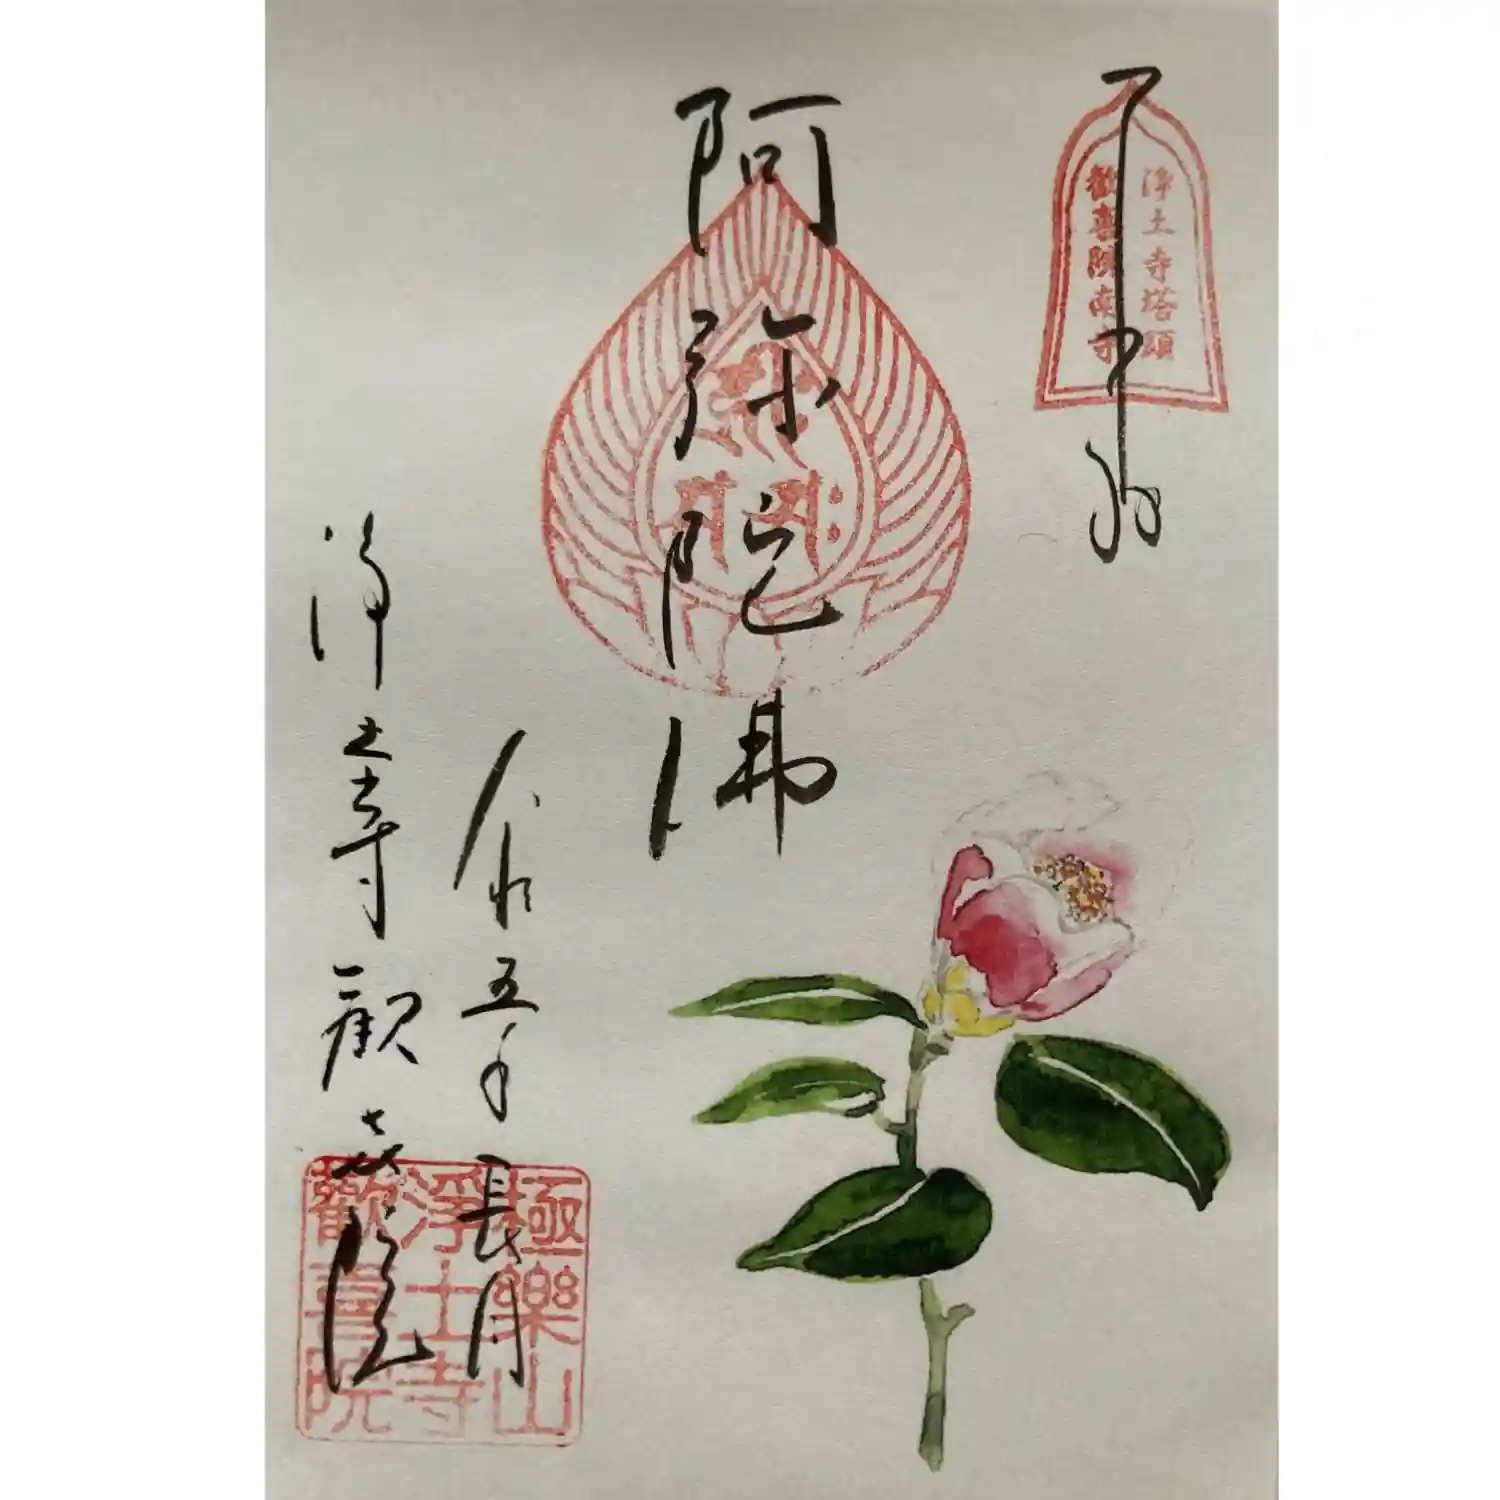 浄土寺塔頭
歡喜院南寺
阿弥陀佛
令和五年長月
浄土寺歓喜院
極樂山
淨土寺
歡喜院